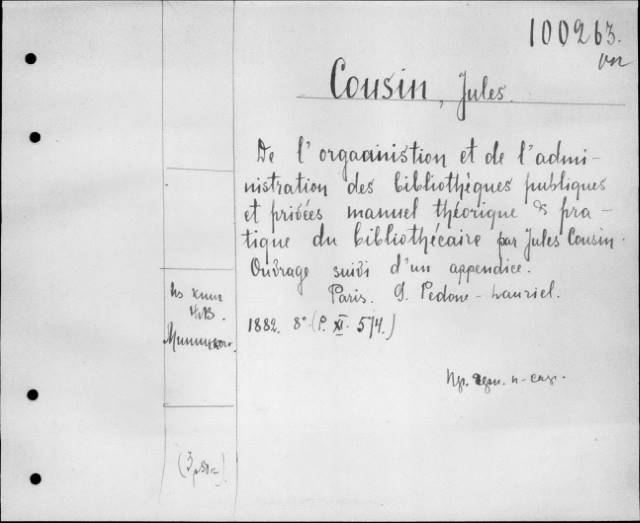 100263.
Cousin, Jules.
De l'orgaanistion et de l'admi-
nistration des bibliothèques publiques
et privées manuel théorique & pra-
tique du bibliothécaire par Jules Cousin.
Ouvrage suivi d'un appendice.
Paris. G. Pedone-Lauriel.
1882. 8° (P. XI. 574.)